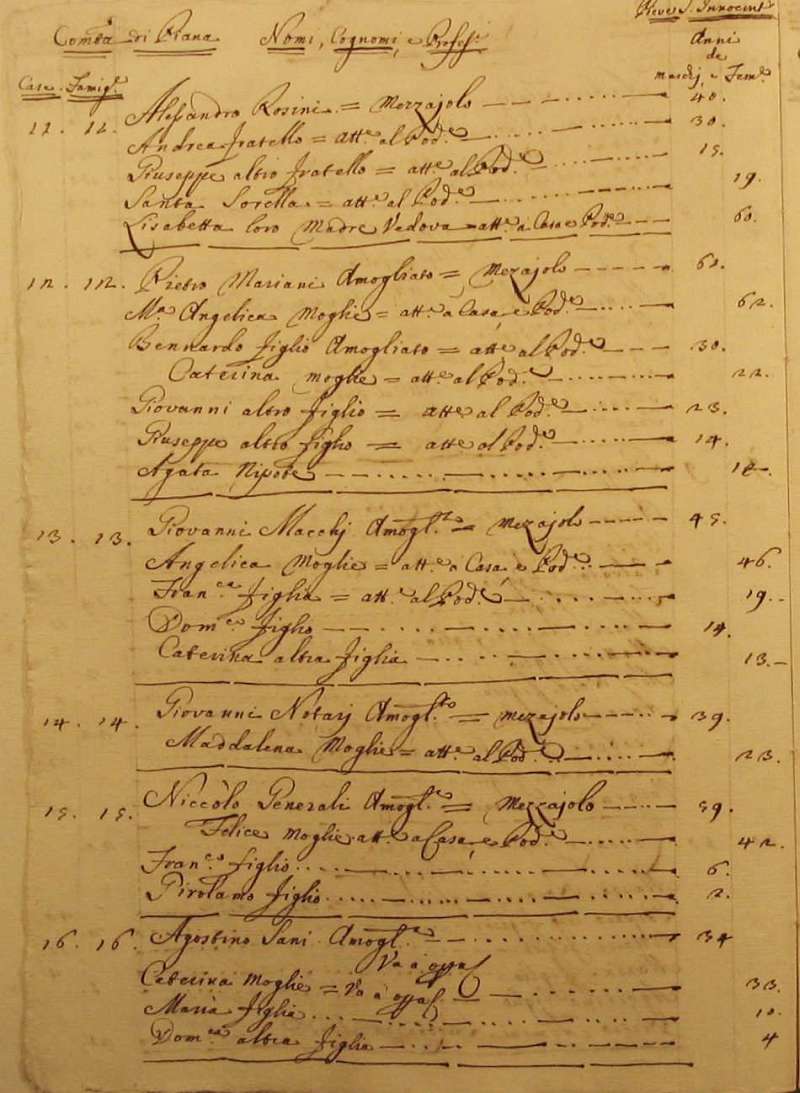 Pieve S. Innocent
Com.tà di Piana Nomi, Cognomi, e Profes.i
Anni
de
Case. Famigl. maschj, e Fem.e
11. 11. Alessandro Rosini = Mezzajolo 40.
Andrea fratello = att.e al Pod.e 30.
Giuseppe altro fratello = att.e al Pod.e 15.
Santa Sorella = att.e al Pod.e 19.
Lisabetta loro Madre Vedova = att.e a Casa e Pod.e 60.
12. 12. Pietro Mariani Amogliato = Mezajolo 61.
M.a Angelica Moglie = att.e a Casa, e Pod.e 62.
Bennardo figlio Amogliato = att.e al Pod.e 30.
Caterina moglie = att.e al Pod.e 22.
Giovanni altro figlio = att.e al Pod.e 23.
Giuseppe altro figlio = att.e al Pod.e 14.
Agata Nipote
13. 13. Giovanni Macchj Amogl.to = Mezajolo 45.
Angelica Moglie = att.e a Casa e Pod.e 46.
Fran.ca figlia = att.e al Pod.e 19.
Dom.co figlio 14.
Caterina altra figlia 13.
14. 14. Giovanni Notarj Amogl.to = Mezajolo 39.
Maddalena Moglie = att.e al Pod.e 23.
15. 15. Niccolo Generali Amogl.to = Mezzajolo 59.
Felice Moglie att.e a Casa, e Pod.e 42.
Fran.co figlio 6.
Girolamo figlio 2.
16. 16. Agostino Sani Amogl.to 34
Va a opra
Caterina Moglie = Va a opra 33.
Maria figlia 10.
Dom.ca altra figlia 4